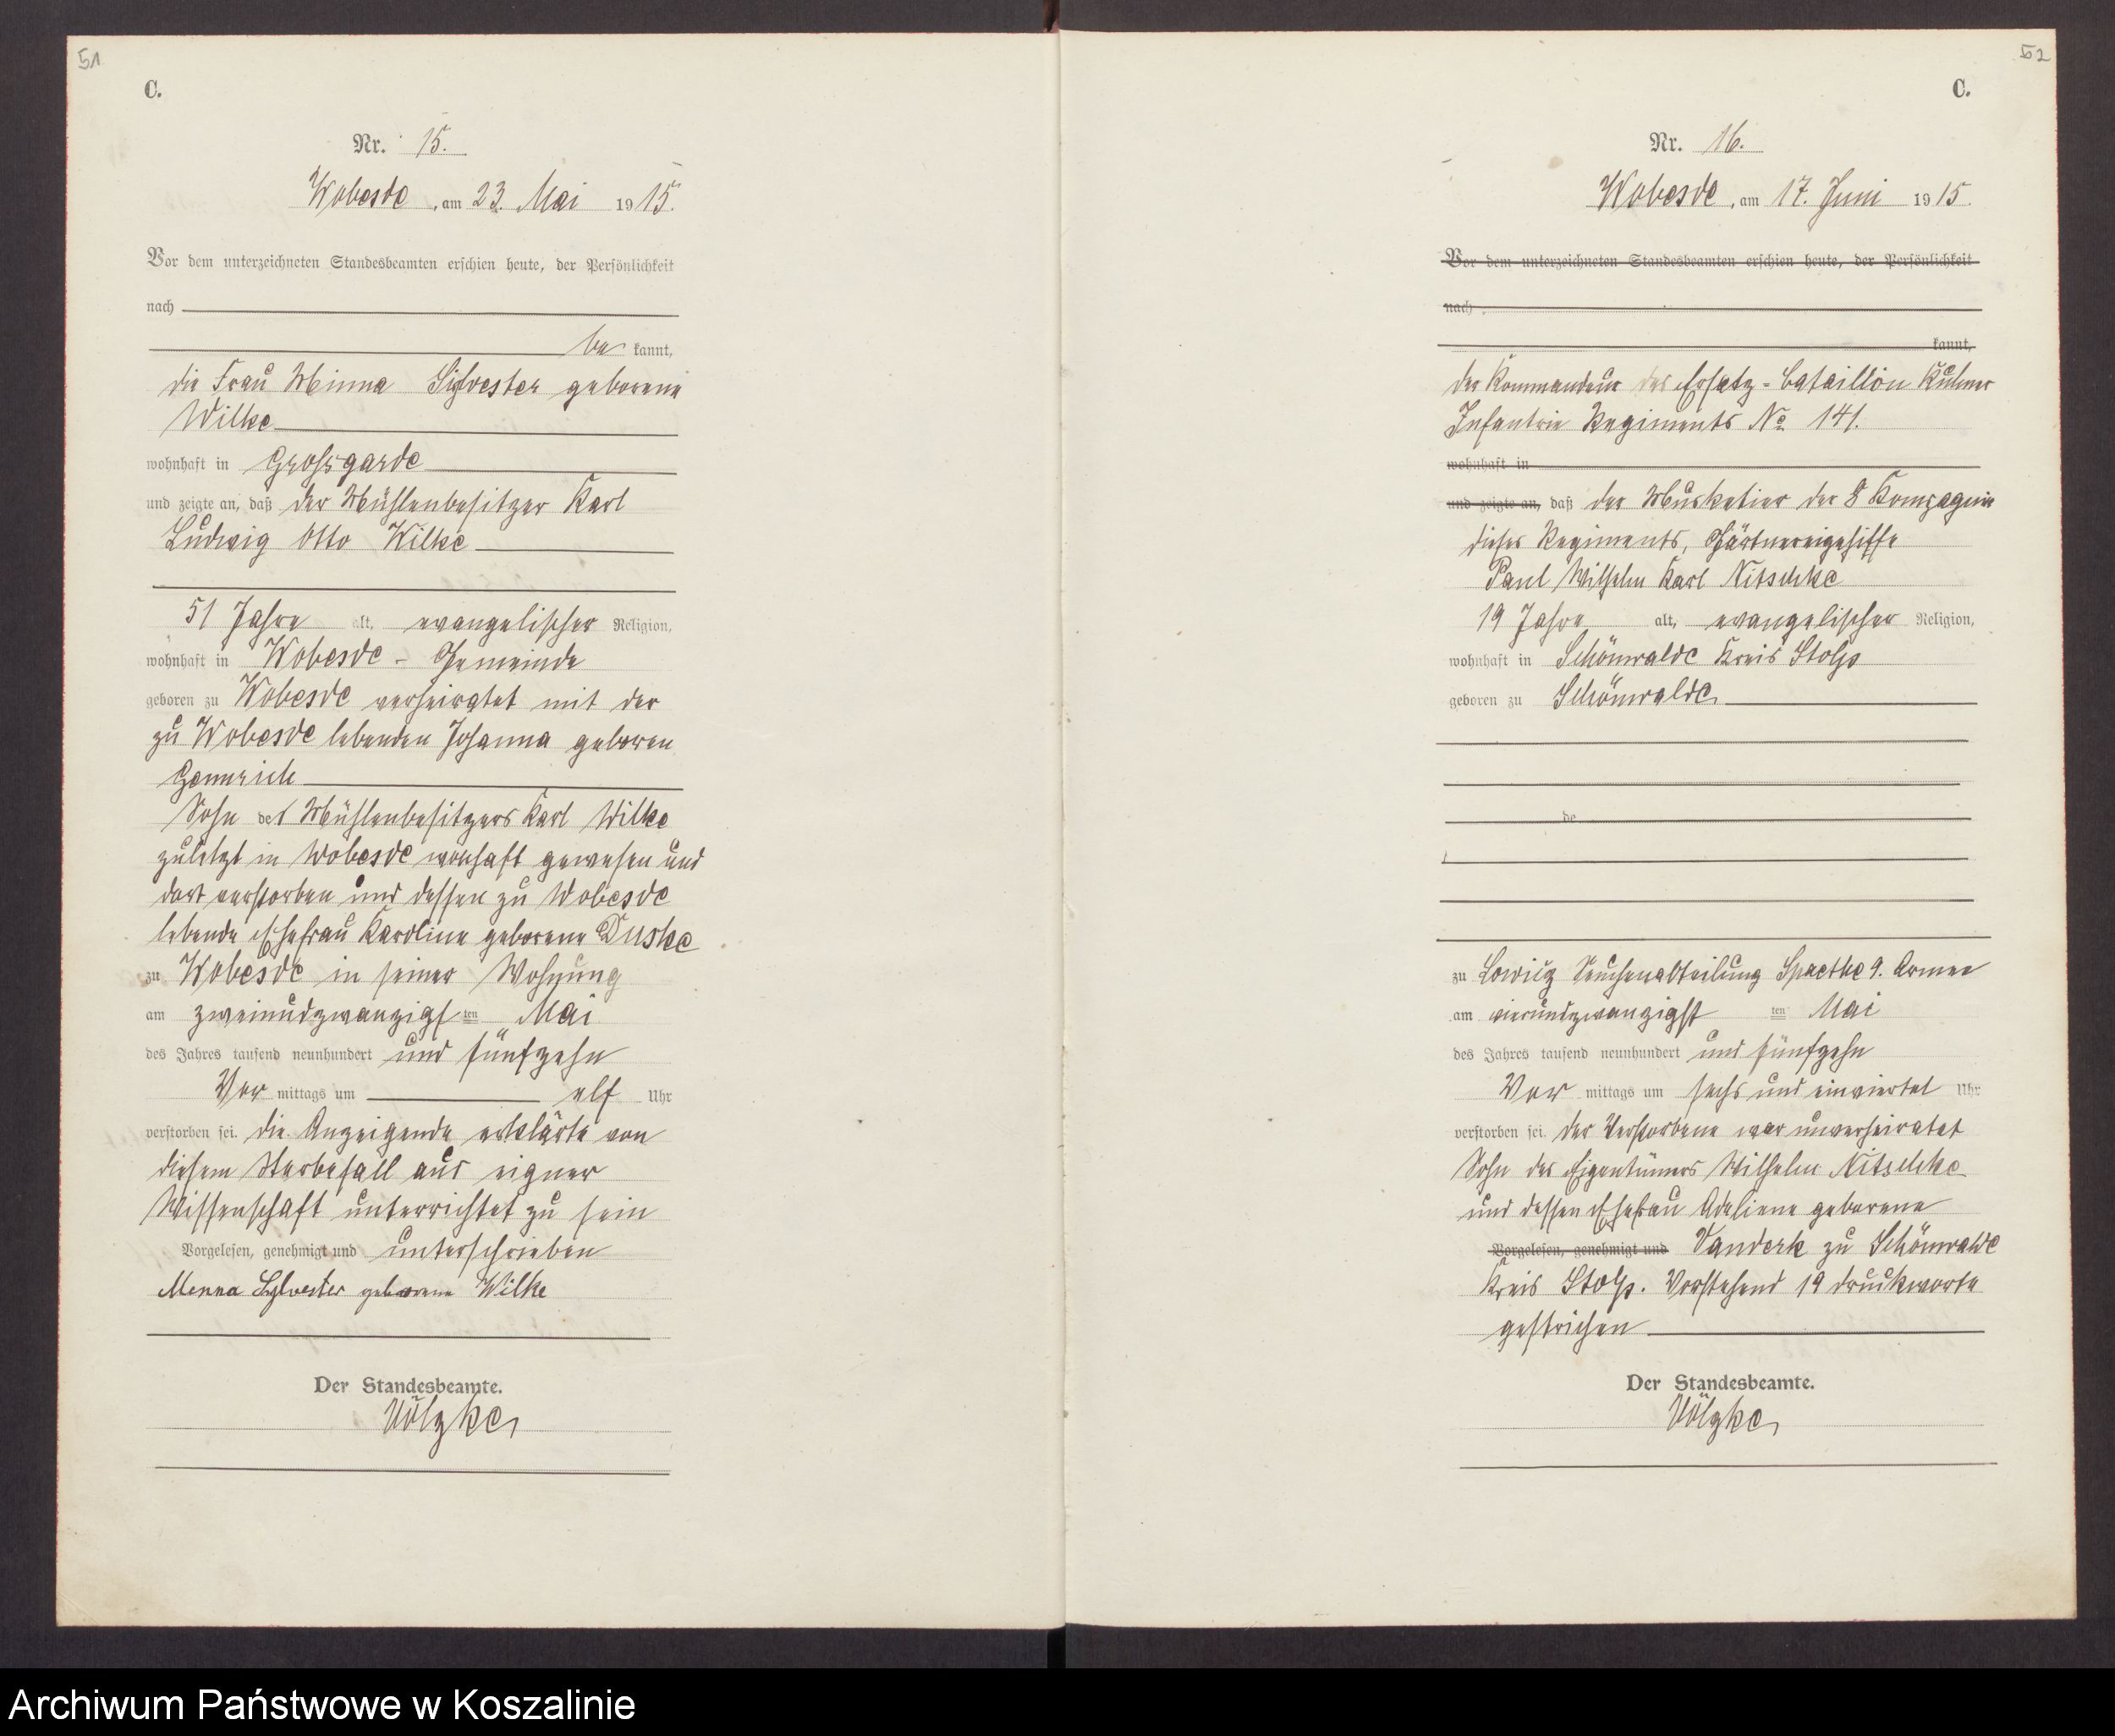 51
C.
Nr. 15.
Wobesde, am 23. Mai 1915.
Vor dem unterzeichneten Standesbeamten erschien heute, der Persönlichkeit
nach
be kannt,
die Frau Minna Silvester geborene
Wilke
wohnhaft in Grossgarde
und zeigte an, daß der Mühlenbesitzer Karl
Ludwig Otto Wilke
51 Jahre alt, evangelischer Religion,
wohnhaft in Wobesde - Gemeinde
geboren zu Wobesde verheiratet mit der
zu Wobesde lebenden Johanna geboren
Gennrich
Sohn des Mühlenbesitzers Karl Wilke
zuletzt in Wobesde wohnhaft gewesen und
dort verstorben und dessen zu Wobesde
lebende Ehefrau Karoline geborene Duske
zu Wobesde in seiner Wohnung
am zweiundzwanzigsten Mai
des Jahres tausend neunhundert und fünfzehn
Vor mittags um elf Uhr
verstorben sei. die Anzeigende erklärte von
diesem Sterbefall aus eigner
Wissenschaft unterrichtet zu sein
Vorgelesen, genehmigt und unterschrieben
Menna Sylvester geborene Wilke
Der Standesbeamte.
Völzke
52
C.
Nr. 16.
Wobesde, am 17. Juni 1915.
Vor dem unterzeichneten Standesbeamten erschien heute, der Persönlichkeit
nach
kannt,
der Kommandeur des Ersatz-Bataillon Kulmer
Infantrie Regiments No 141.
wohnhaft in
und zeigte an, daß der Musketier der 8 Kompagnie
dieses Regiments, Gärtnereigehilfe
Paul Wilhelm Karl Nitschke
19 Jahre alt, evangelischer Religion,
wohnhaft in Schönwalde Kreis Stolp
geboren zu Schönwalde
de
zu Lowicz Seuchenabteilung Spaethe 9. Armee
am vierundzwanzigst ten Mai
des Jahres tausend neunhundert und fünfzehn
Vor mittags um sechs und einviertel Uhr
verstorben sei. der Verstorbene war unverheiratet
Sohn des Eigentümers Wilhelm Nitschke
und dessen Ehefrau Adeliene geborene
Vorgelesen, genehmigt und Vanderk zu Schönwalde
Kreis Stolp. Vorstehend 19 druckworte
gestrichen
Der Standesbeamte.
Völzke
Archiwum Państwowe w Koszalinie